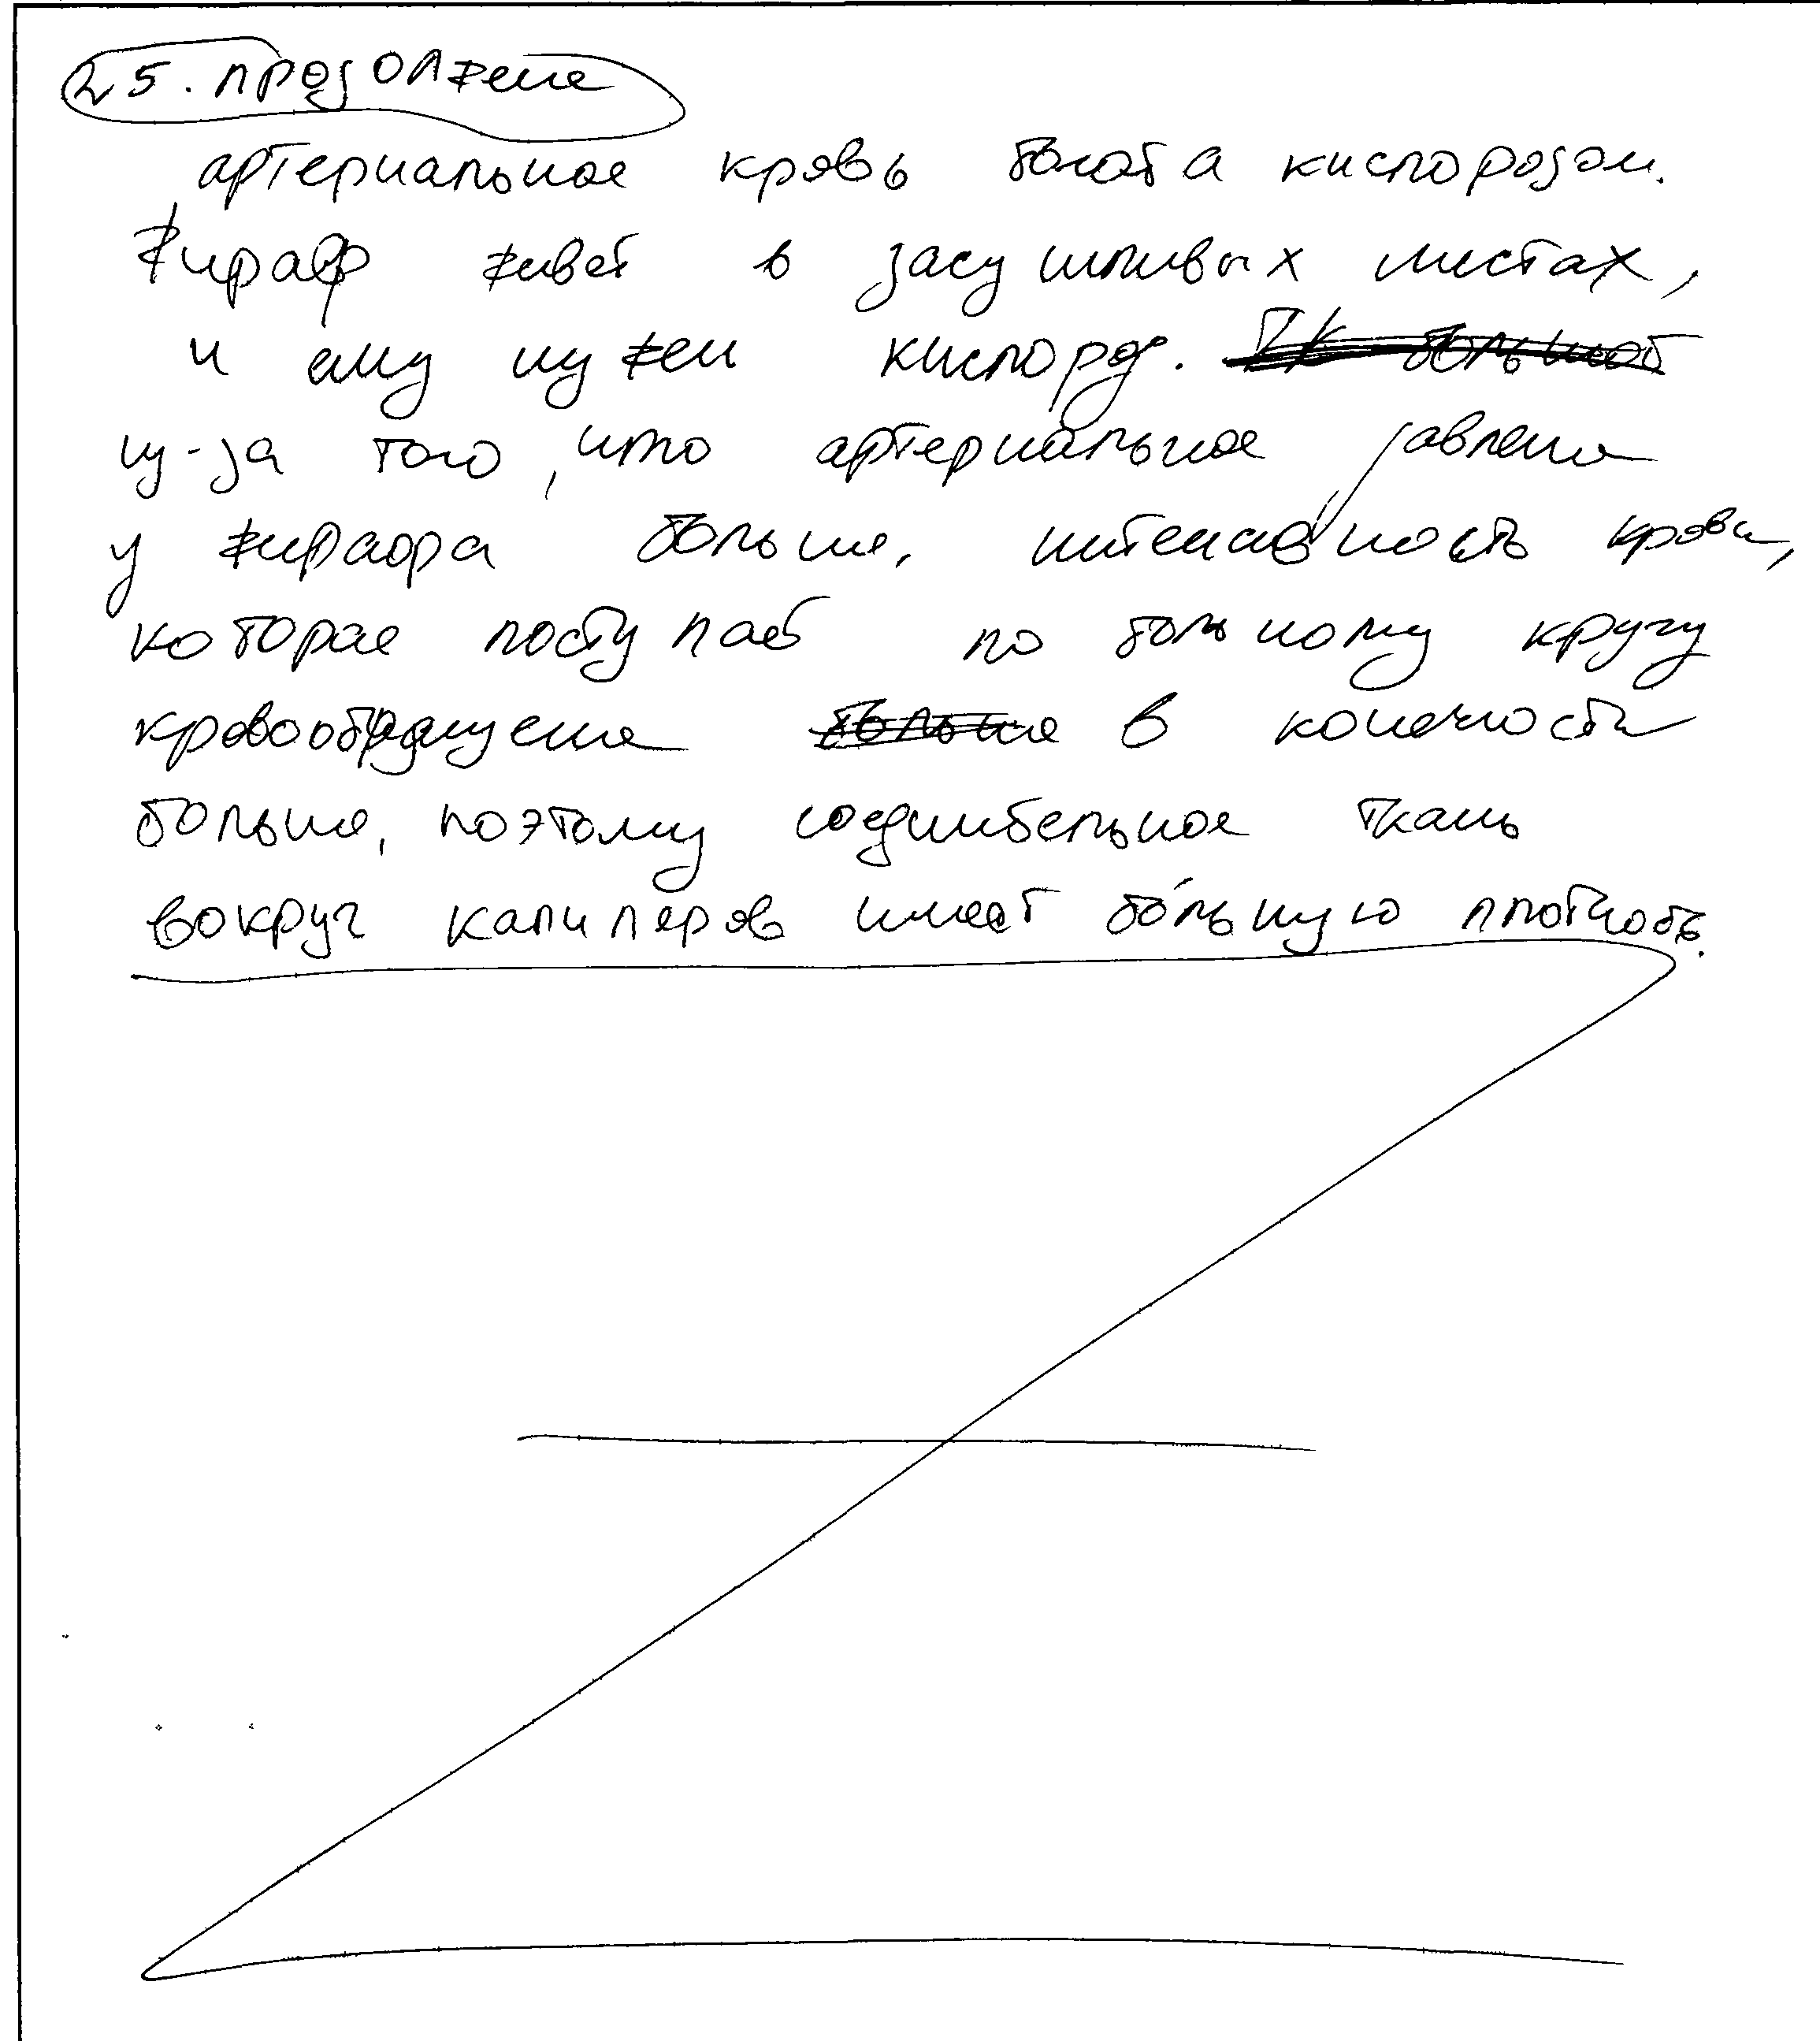 25. продолжение
артериальная кровь богата кислородом.
Жираф живет в засушливых местах,
и ему нужен кислород. ~~Тк большой~~
из-за того, что артериальное давление
у жирафа больше, интенсивность крови,
которая поступает по большому кругу
кровообращения ~~больше~~ в конечности
больше, поэтому соединительная ткань
вокруг капиляров имеет бо́льшую плотность.